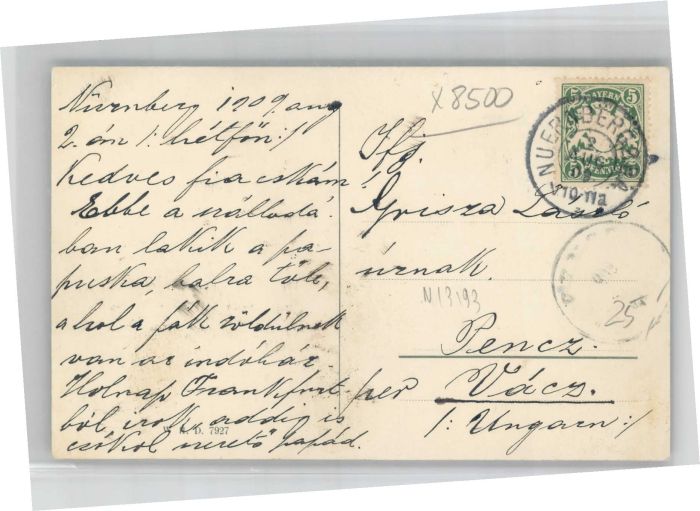 Nürnberg 1909. aug
2.án /: hétfőn:/
Kedves fiacskám!
Ebbe a szállodá-
ban lakik a pa-
puska, balra tőle,
ahol a fák zöldülnek
van az indóház.
Holnap Frankfurt-
ból irok, addig is
csókol szerető papád.
D. 7927
X8500
Ifj.
Grisza László
úrnak.
N13193
Pencz.
per Vácz.
/: Ungarn :/
BAYERN
5 5
5 5
PFENNIG
NUERNBERG
2 AUG
25